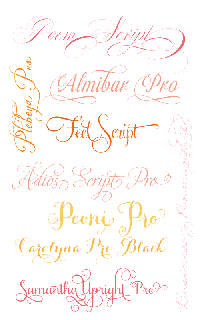 Poem Script
Piel Script
Almibar Pro
Feel Script
Adios Script Pro
Peoni Pro
Carolyna Pro Black
Samantha Upright Pro